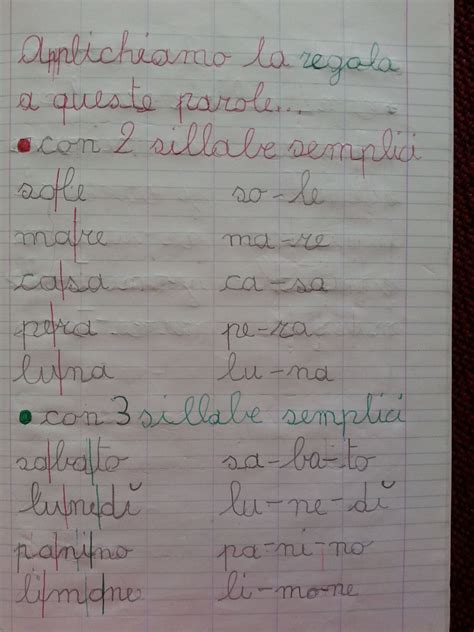 Applichiamo la regola
a queste parole...
con 2 sillabe semplici
so|le so-le
ma|re ma-re
ca|sa ca-sa
pe|ra pe-ra
lu|na lu-na
con 3 sillabe semplici
sa|ba|to sa-ba-to
lu|ne|dĭ lu-ne-dĭ
pa|ni|no pa-ni-no
li|mo|ne li-mo-ne